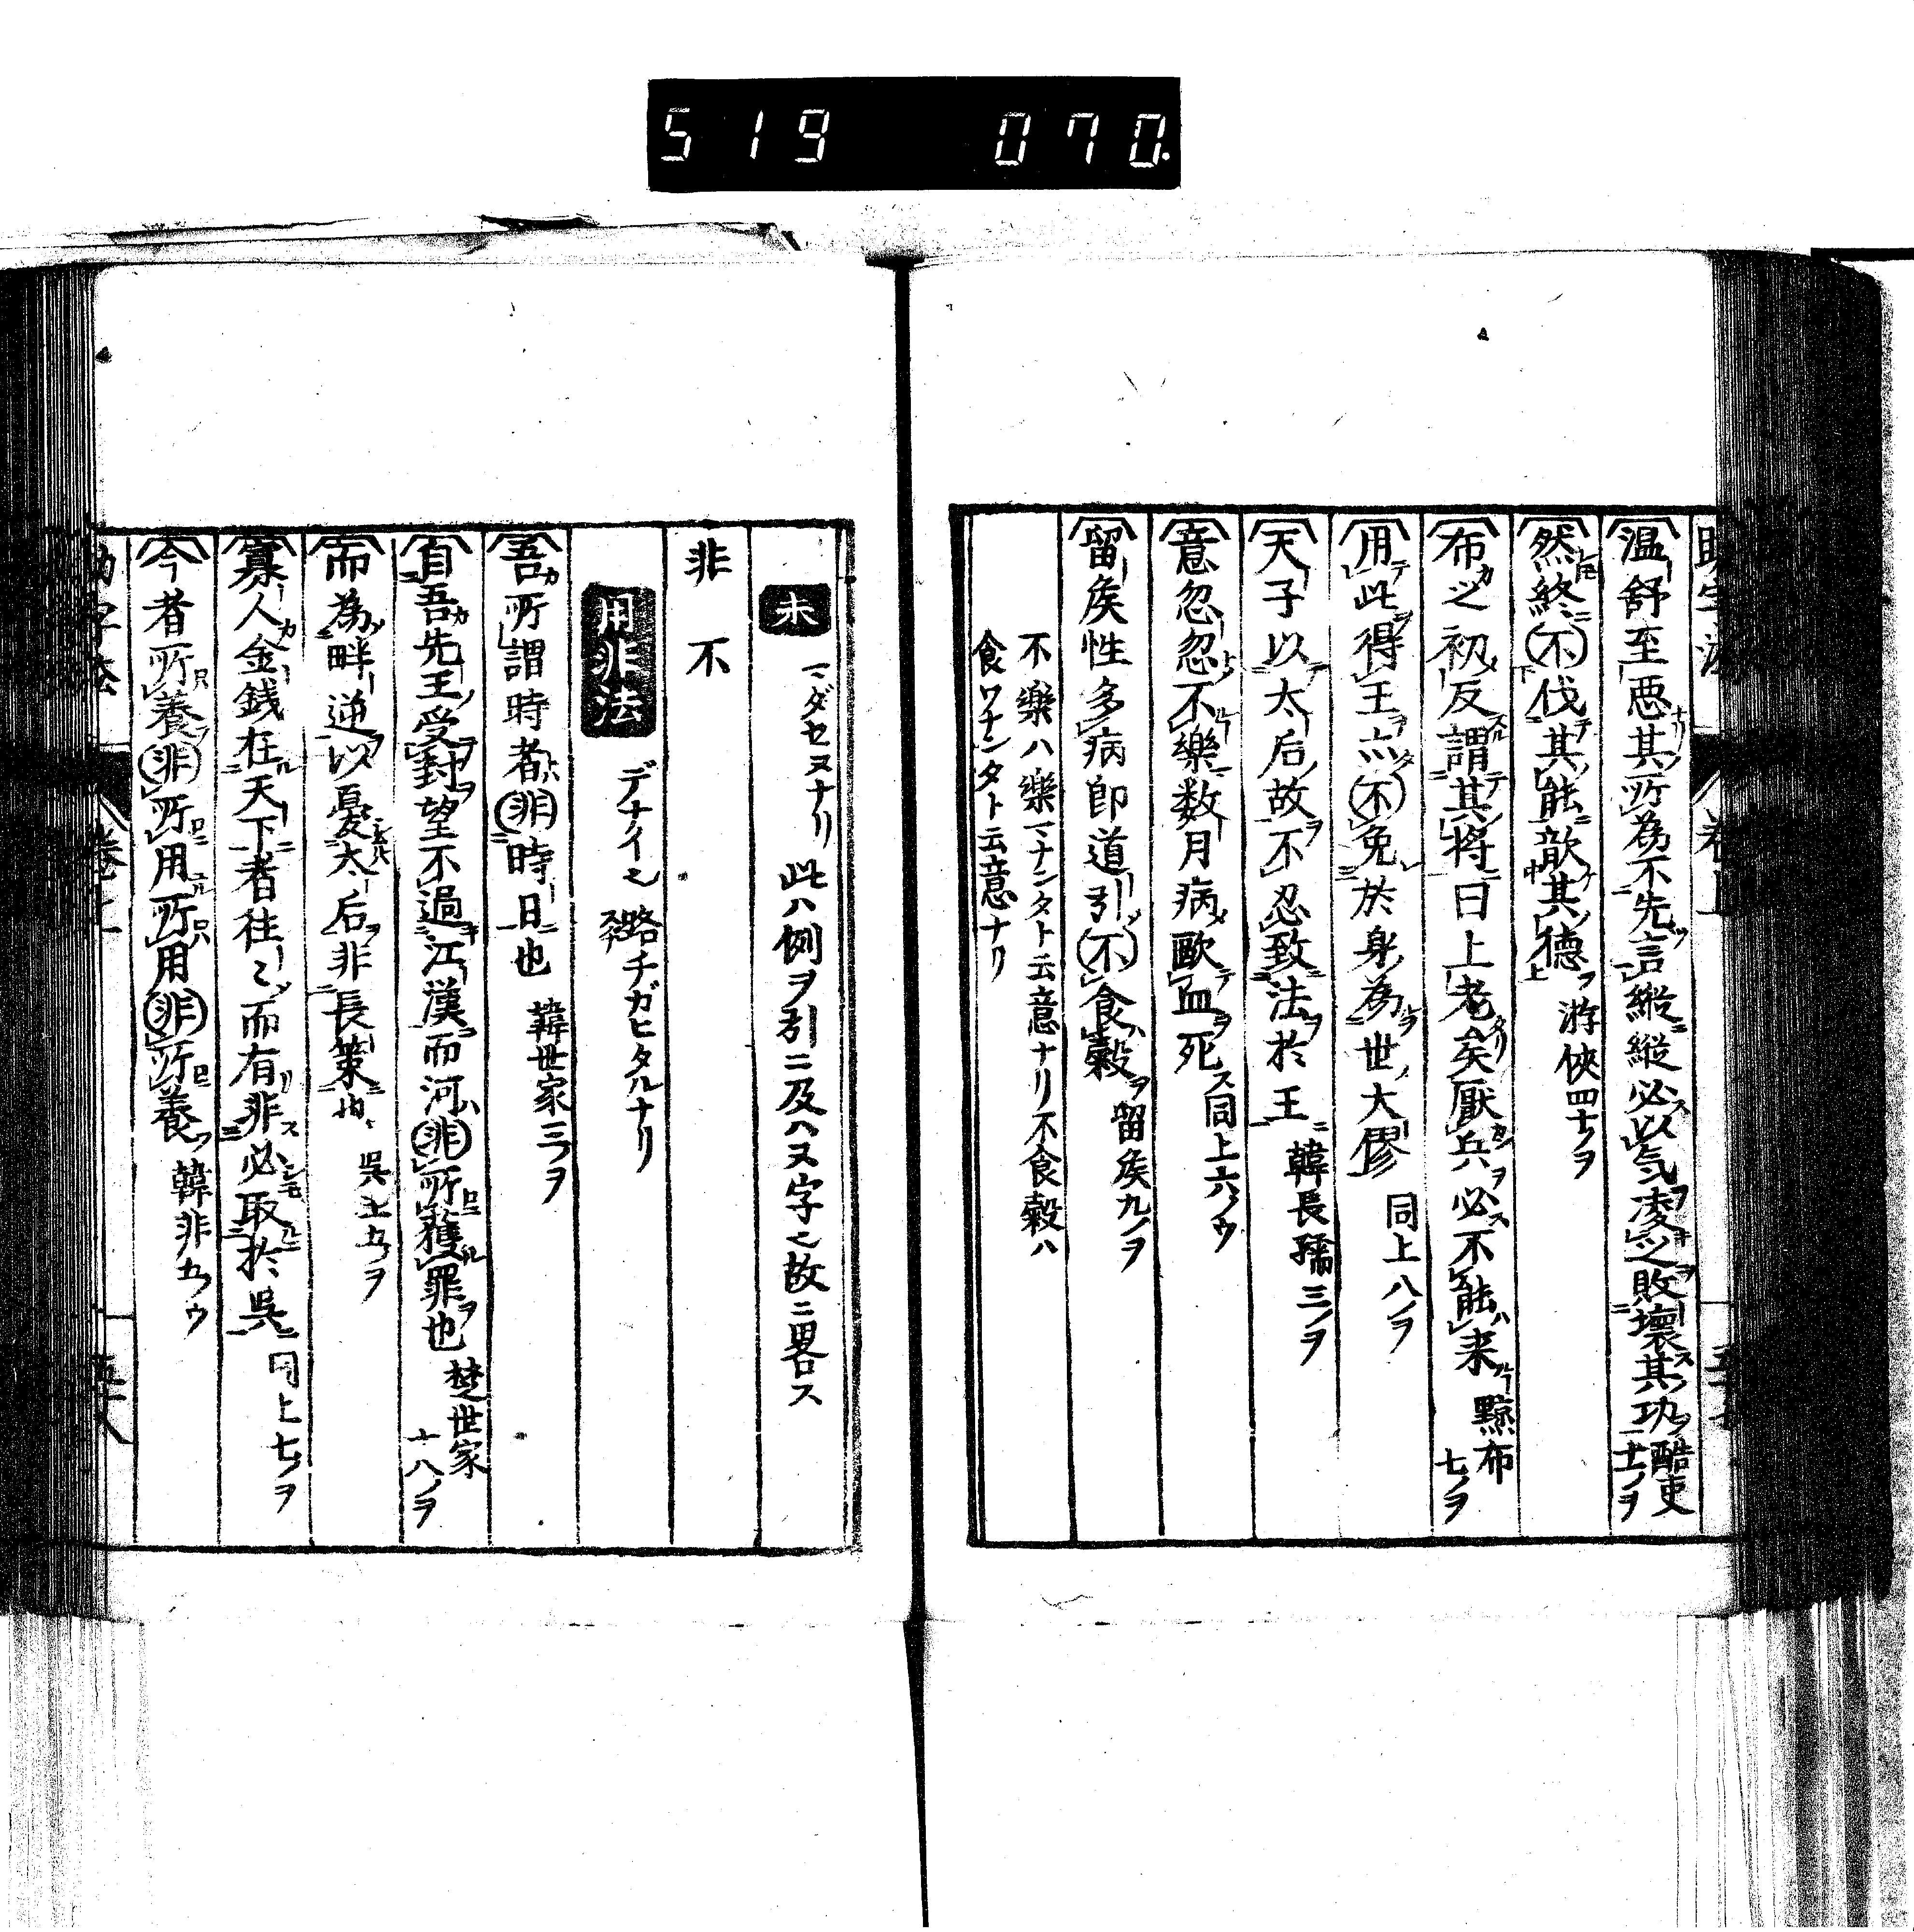 519 070.
温舒至悪其所為不先言縦縦必以気凌之敗壊其功 酷吏十一ノヲ
然終不伐其能歆其徳 游侠四十ノヲ
布之初反謂其将曰上老矣厭兵必不能来 黥布七ノヲ
用此得王亦不免於身為世大僇 同上八ノヲ
天子以太后故不忍致法於王 韓長孺三ノヲ
意忽忽不樂数月病歐血死 同上六ノウ
留矦性多病即道引不食穀 留矦九ノヲ
不樂ハ樂マナンタト云意ナリ不食穀ハ
食ワナンタト云意ナリ
未 マダセヌナリ 此ハ例ヲ引ニ及ハヌ字也故ニ畧ス
非 不
用非法 デナイ也 路チガヒタルナリ
吾所謂時者非時日也 韓世家三ノヲ
自吾先王受封望不過江漢而河非所獲罪也 楚世家十八ノヲ
而為畔逆以憂太后非長策也 呉王五ノヲ
寡人金銭在天下者往々而有非必取於呉 同上七ノヲ
今者所養非所用所用非所養 韓非五ノウ